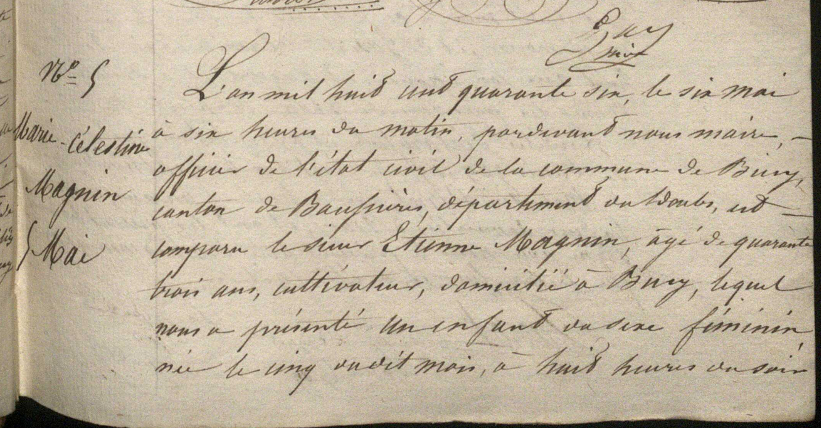 Nº 5
Marie-Célestine
Magnin
5 Mai
L'an mil huit cent quarante six, le six mai
à six heures du matin, pardevant nous maire,
officier de l'état civil de la commune de Busy,
canton de Boussières, département du Doubs, est
comparu le sieur Etienne Magnin, âgé de quarante
trois ans, cultivateur, domicilié à Busy, lequel
nous a présenté un enfant du sexe féminin
née le cinq dudit mois, à huit heures du soir